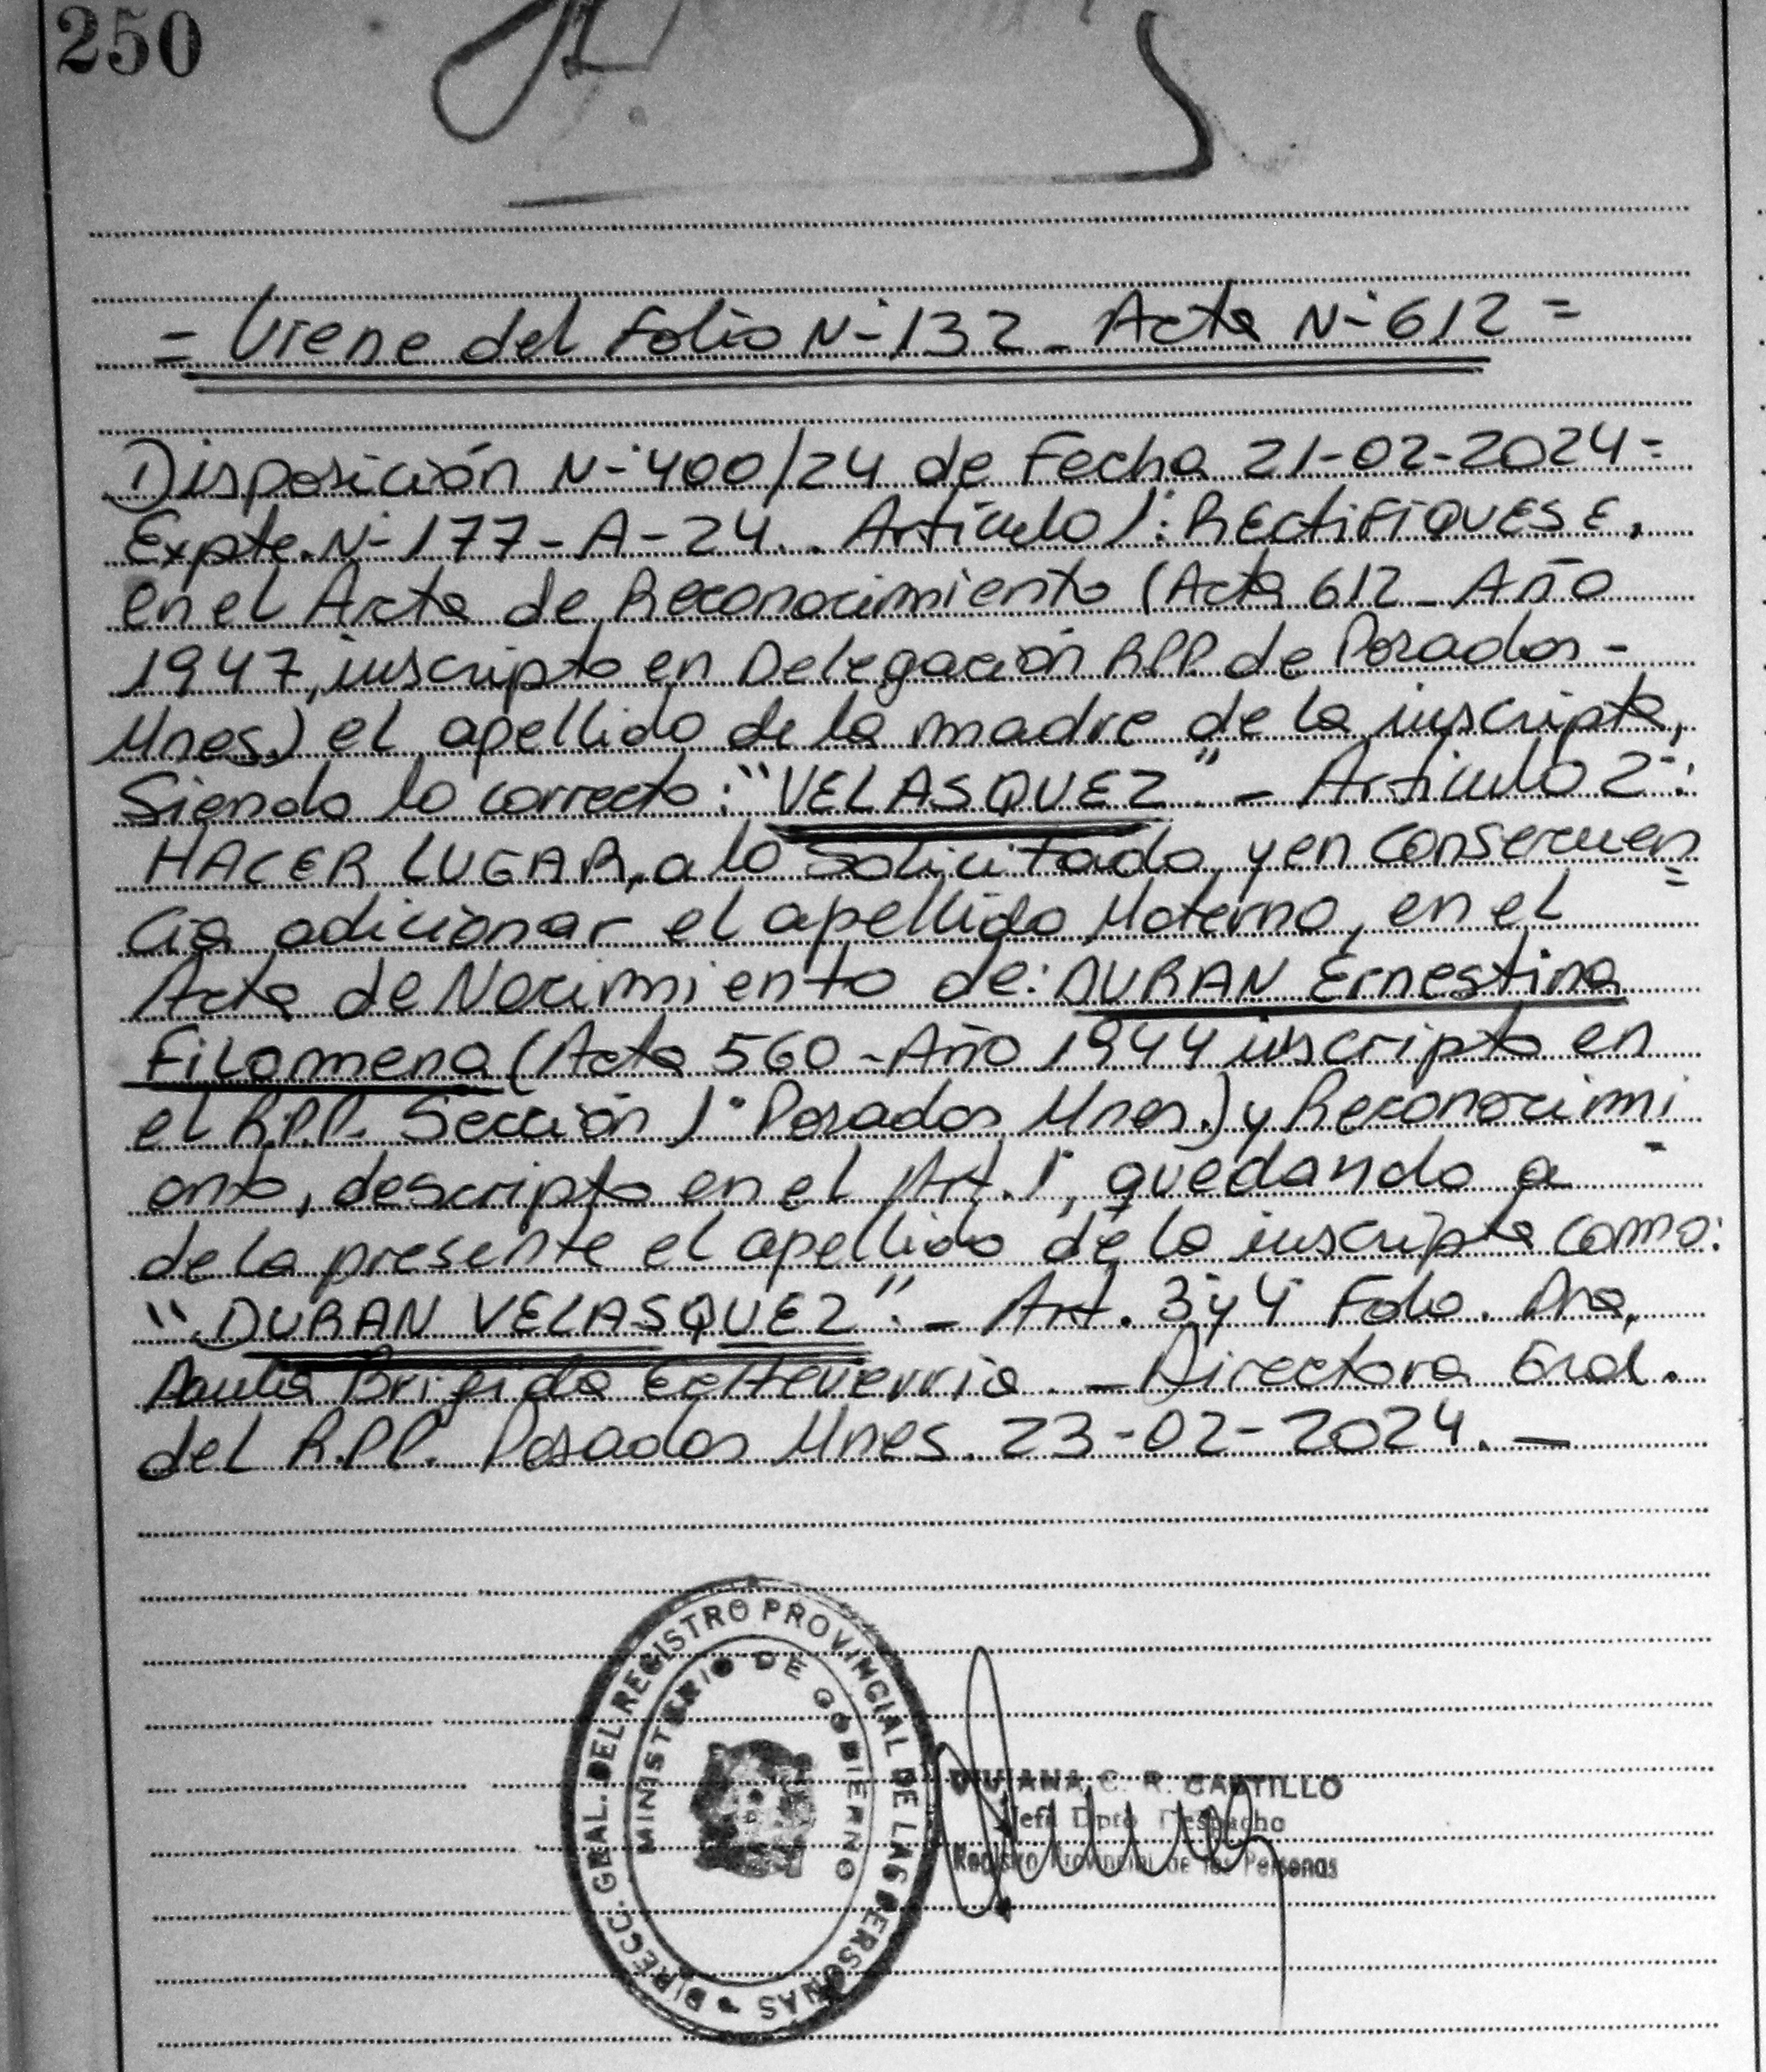 250
= Viene del Folio N° 132 - Acta N° 612 =
Disposición N° 400/24 de Fecha 21-02-2024=
Expte. N° 177-A-24.. Artículo 1°: RECTIFIQUESE,
en el Acta de Reconocimiento (Acta 612 - Año
1947, inscripta en Delegación RPP. de Posadas -
Mnes.) el apellido de la madre de la inscripta,
Siendo lo correcto: "VELASQUEZ" - Artículo 2°:
HACER LUGAR, a lo Solicitado, y en Consecuen
=
cia adicionar el apellido Materno, en el
Acta de Nacimiento de: DURAN Ernestina
Filomena (Acta 560 - Año 1944 inscripta en
el R.P.P. Sección 1° Posadas Mnes.) y Reconocimi
-
ento, descripto en el Art. 1°, quedando a
de la presente el apellido de la inscripta como:
"DURAN VELASQUEZ". - Art. 3° y 4° Fdo. Dra,
Brigida Echeverria. - Directora Gral.
del R.P.P. Posadas Mnes. 23-02-2024. -
DIRECC. GRAL. DEL REGISTRO PROVINCIAL DE LAS PERSONAS
MINISTERIO DE GOBIERNO
C. R. CASTILLO
Jefa Dpto Despacho
Registro Provincial de las Personas